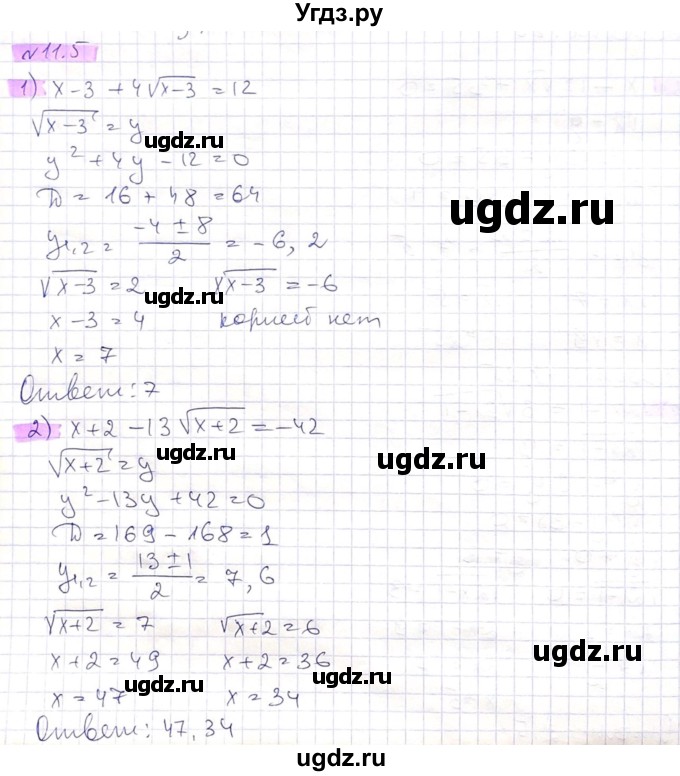 Угдз.ру
№11.5
1) x-3 + 4√x-3 = 12
√x-3 = y
ugdz.ru
y² + 4y - 12 = 0
D = 16 + 48 = 64
ugdz.ru
y₁,₂ = -4 ± 8 / 2 = -6, 2
√x-3 = 2 √x-3 = -6
ugdz.ru
x-3 = 4 корней нет
x = 7
Ответ: 7
2) x+2 - 13√x+2 = -42
ugdz.ru
ugdz.ru
√x+2 = y
y² - 13y + 42 = 0
D = 169 - 168 = 1
y₁,₂ = 13 ± 1 / 2 = 7, 6
√x+2 = 7 √x+2 = 6
ugdz.ru
x+2 = 49 x+2 = 36
ugdz.ru
x = 47 x = 34
Ответ: 47, 34
ugdz.ru